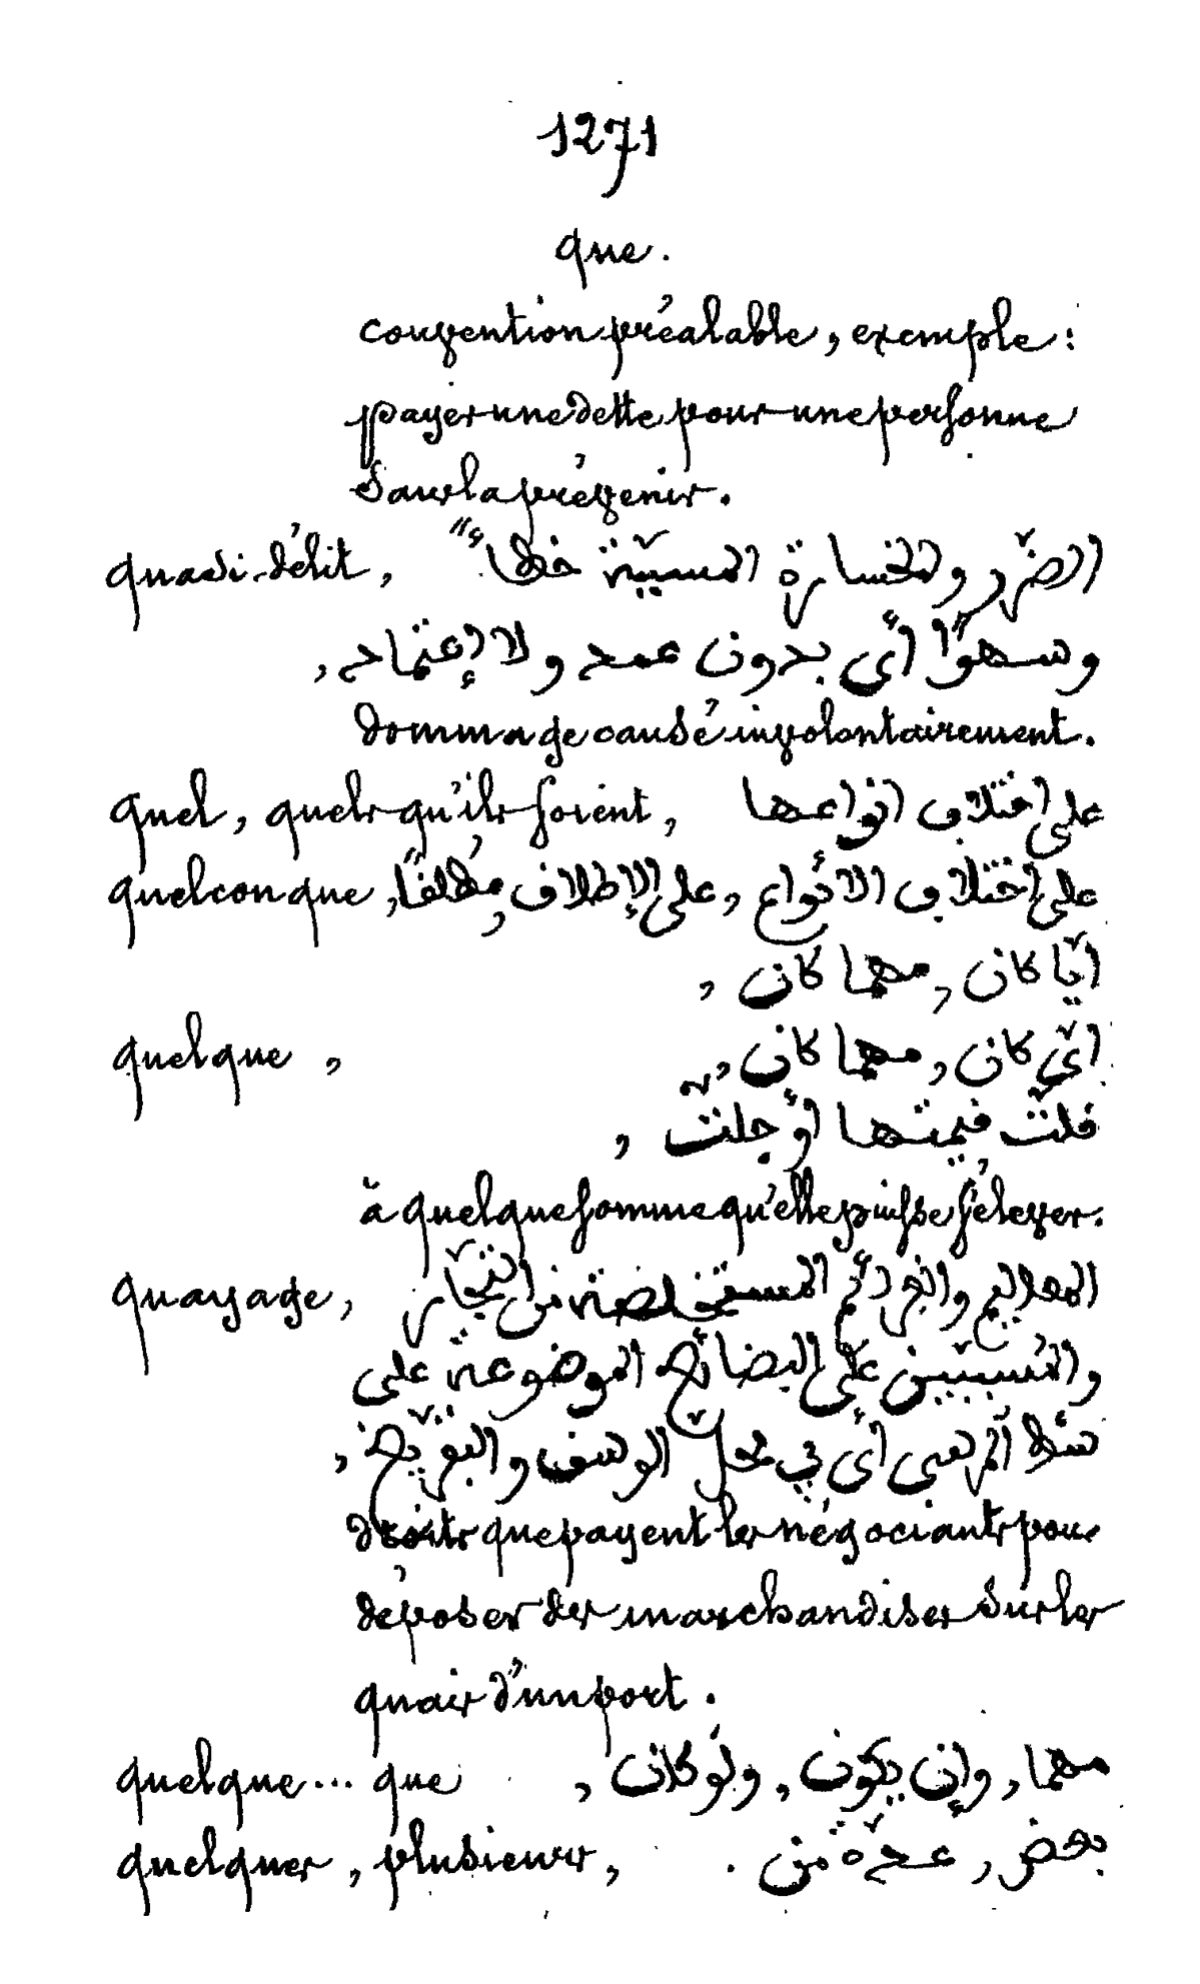 1271
que.
convention préalable, exemple:
payer une dette pour une personne
sans la prévenir.
quasi-délit, الضّرر والخسارة المسبّبة خطأً
وسهوًا أي بدون عمد ولا إعتماد,
dommage causé involontairement.
quel, quels qu'ils soient, على اختلاف انواعها
quelconque, على اختلاف الأنواع, على الإطلاق, مُطلقًا,
ايّا كان, مهما كان,
quelque, ايّ كان, مهما كان,
قلّت قيمتها أو جلّت,
à quelque somme qu'elle puisse s'élever.
quayage, المستخلصة من التّجّار
والمتسبّبين على البضائع الموضوعة على
شطّ المرسى أي في محلّ الوسق والتفريغ,
droits que payent les négociants pour
déposer des marchandises sur les
quais d'un port.
quelque... que مهما, وإن يكون, ولو كان,
quelques, plusieurs, بعض, عدّة من.